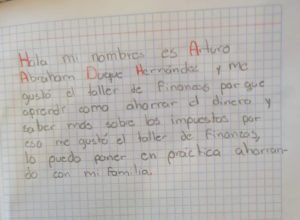 Hola mi nombres es Arturo
Abraham Duque Hernández y me
gustó el taller de Finanzas por que
aprendí como ahorrar el dinero y
saber más sobre los impuestos por
eso me gustó el taller de Finanzas,
lo puedo poner en práctica ahorran-
do con mi familia.